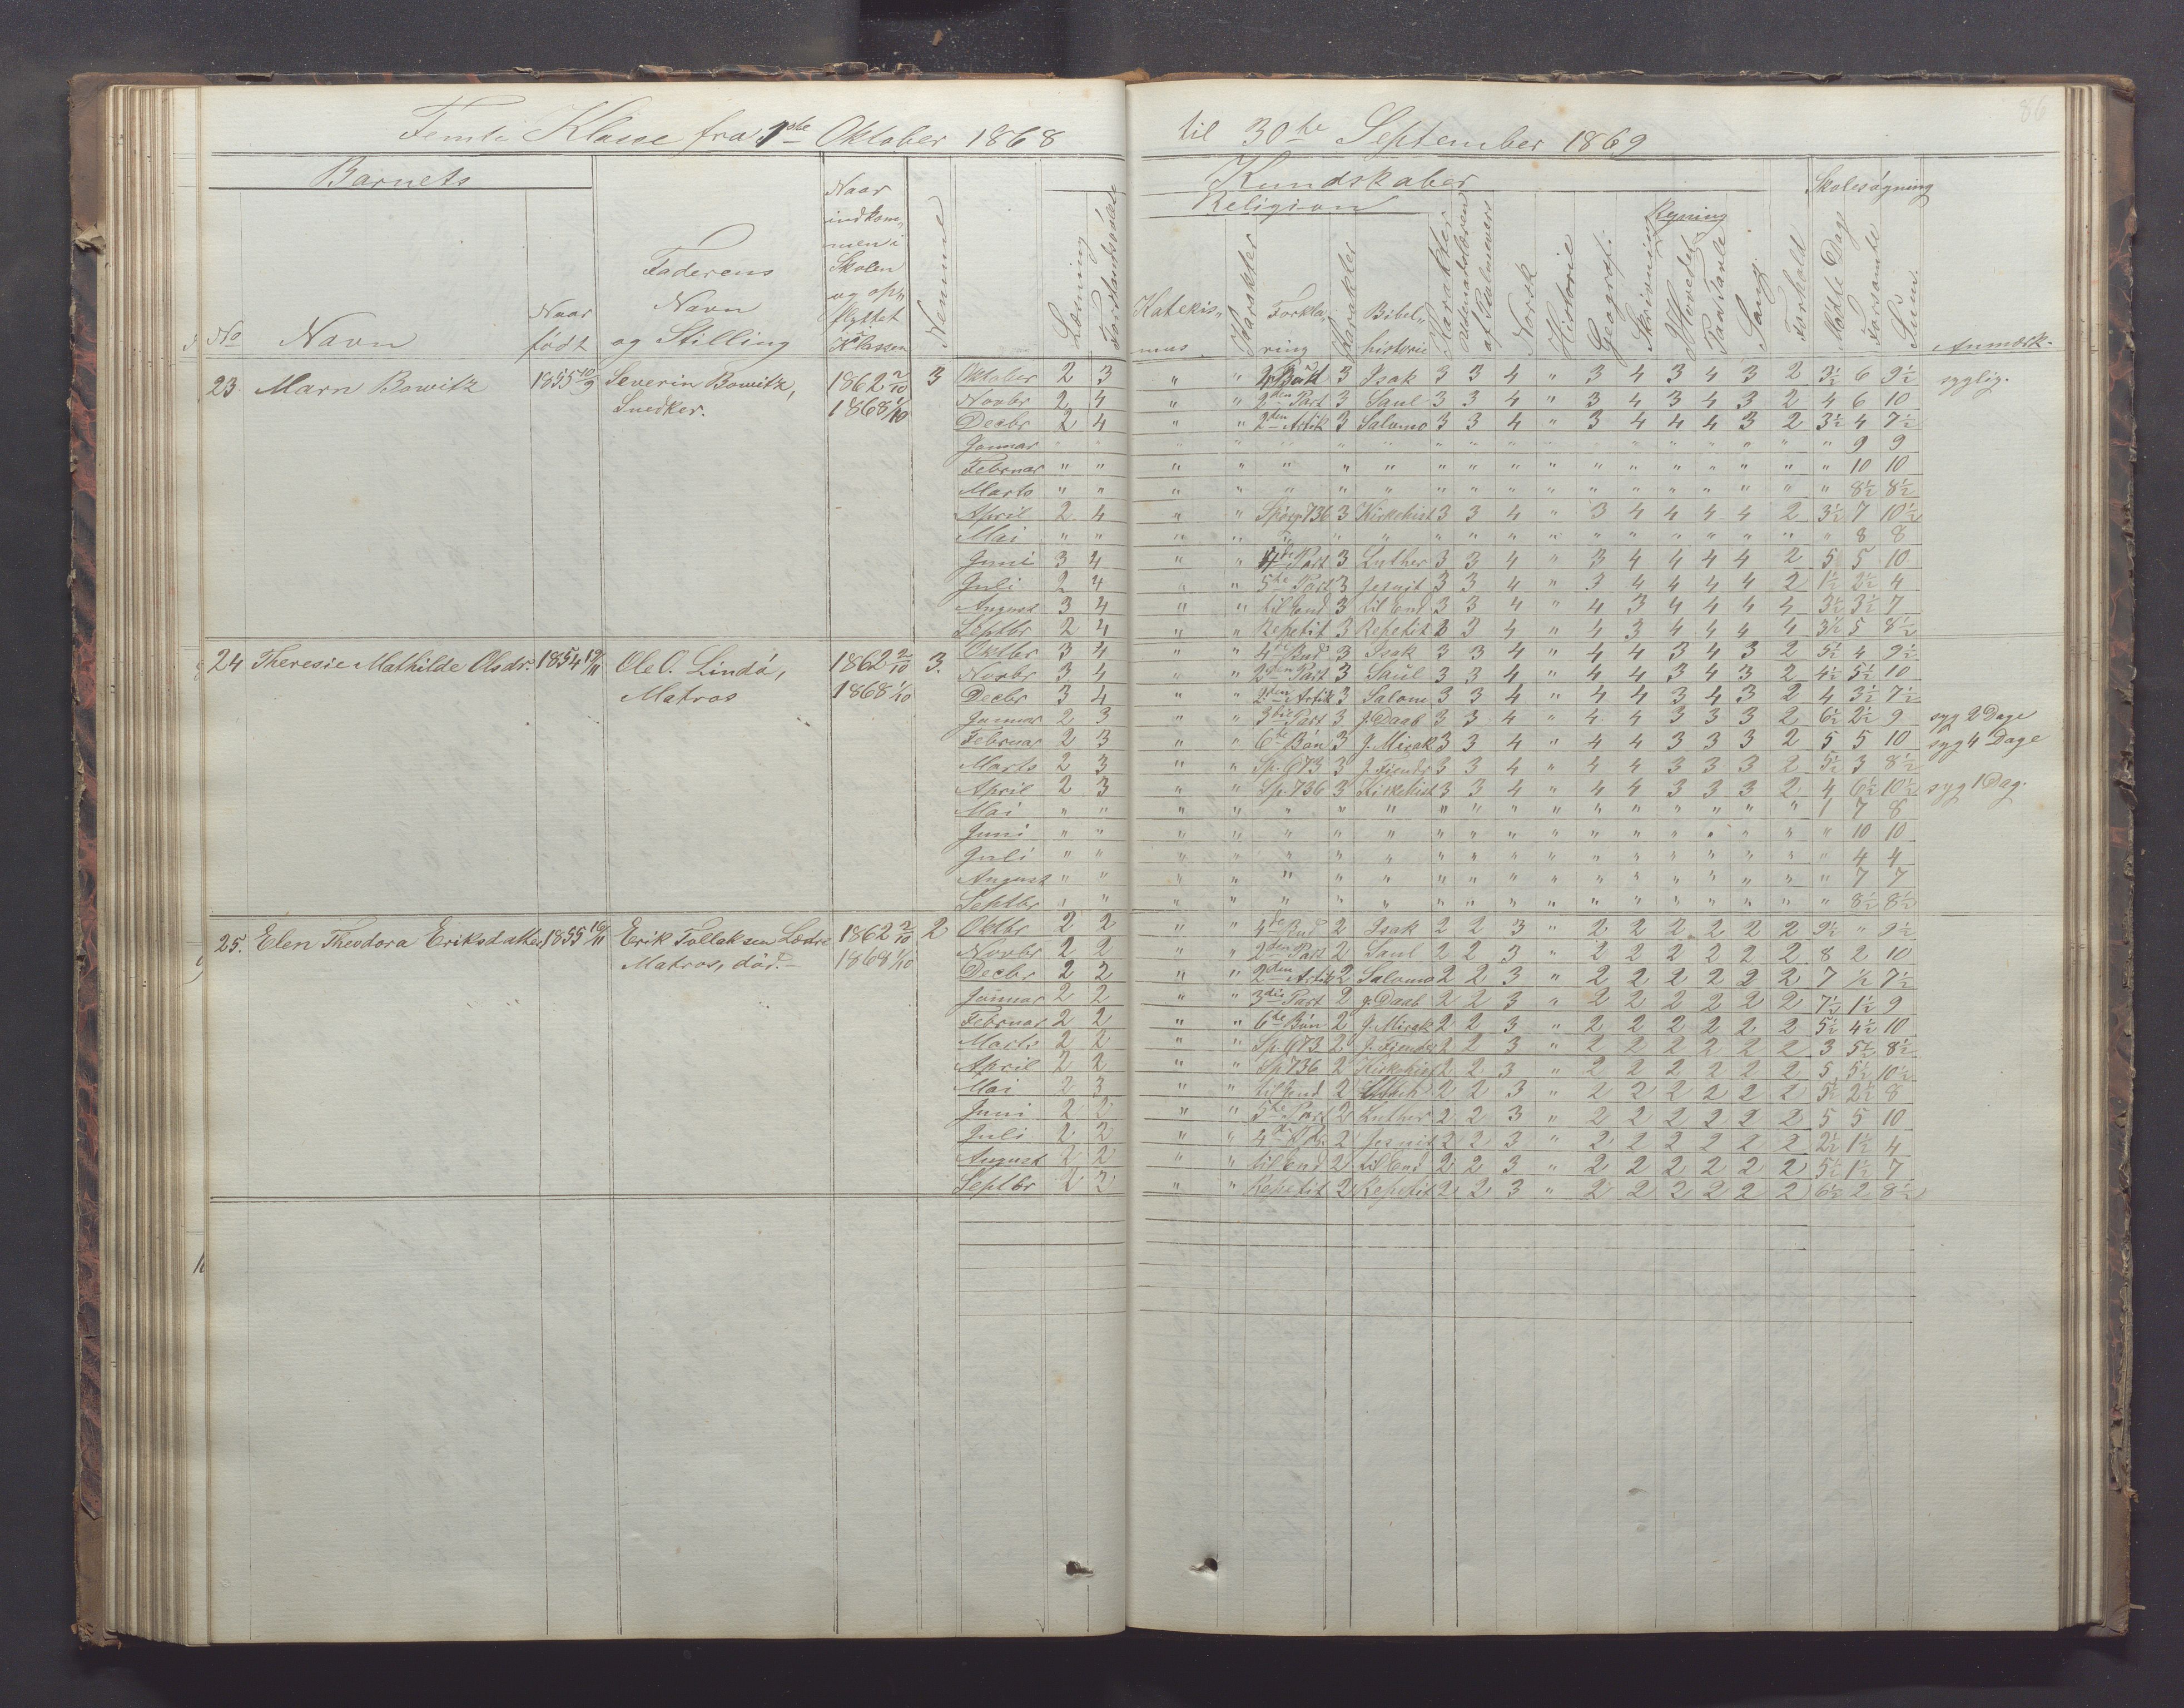 Femte Klasse fra 1ste Oktober 1868 til 30te September 1869
86
Barnets
Kundskaber
Skolesøgning
Religion
Regning
No
Navn
Naar født
Faderens Navn og Stilling
Naar indkom„ men i Skolen og op„ flyttet i Klassen
Nemme
Læsning
Forstandsøvelse
Katekis„ mus
Karakter
Forkla„ ring
Karakter
Bibel„ historie
Karakter
Udenadslæren af Psalmevers
Norsk
Historie
Geografi
Skrivning
Hovedet
Paa Tavle
Sang
Forhold
Mødte Dage
Forsømte
Sum
Anmærk.
23. Marn Bowitz 1855 10/9 Severin Bowitz, 1862 2/10 3
Snedker. 1868 1/10
Oktober 2 3 " " 4 Bud 3 Isak 3 3 4 " 3 4 3 4 3 2 3½ 6 9½ syglig.
Novbr 2 4 " " 2den Part 3 Saul 3 3 4 " 3 4 3 4 3 2 4 6 10
Decbr 2 4 " " 2den Artik 3 Salomo 3 3 4 " 3 4 4 4 3 2 3½ 4 7½
Januar " " " " " " " " " " " " " " " " " " 9 9
Februar " " " " " " " " " " " " " " " " " " 10 10
Marts " " " " " " " " " " " " " " " " " " 8½ 8½
April 2 4 " " Spörg 736 3 Kirkehist 3 3 4 " 3 4 4 4 4 2 3½ 7 10½
Mai " " " " " " " " " " " " " " " " " " 8 8
Juni 3 4 " " 4de Part 3 Luther 3 3 4 " 3 4 4 4 4 2 5 5 10
Juli 2 4 " " 5te Part 3 Jesuit 3 3 4 " 3 4 4 4 4 2 1½ 2½ 4
August 3 4 " " til End 3 til End 3 3 4 " 4 3 4 4 4 4 3½ 3½ 7
Septbr 2 4 " " Repetit 3 Repetit 3 3 4 " 4 3 4 4 4 4 3½ 5 8½
24 Theresie Mathilde Olsdr. 1854 19/11 Ole O. Lindö, 1862 2/10 3.
Matros 1868 1/10
Oktbr 3 4 " " 4de Bud 3 Isak 3 3 4 " 4 4 3 4 3 2 5½ 4 9½
Novbr 3 4 " " 2den Part 3 Saul 3 3 4 " 4 4 3 4 3 2 4½ 5½ 10
Decbr 3 4 " " 2den Artik 3 Salom 3 3 4 " 4 4 3 4 3 2 4 3½ 7½
Januar 2 3 " " 3die Part 3 J. Daab 3 3 4 " 4 4 3 3 3 2 6½ 2½ 9 syg 2 Dage
Februar 2 3 " " 6te Bön 3 J. Mirak 3 3 4 " 4 4 3 3 3 2 5 5 10 syg 4 Dage
Marts 2 3 " " Sp. 673 3 J. Fiender 3 3 4 " 4 4 3 3 3 2 5½ 3 8½
April 2 3 " " Sp. 736 3 Kirkehist 3 3 4 " 4 4 3 3 3 2 4 6½ 10½ syg 1 Dag.
Mai " " " " " " " " " " " " " " " " " 1 7 8
Juni " " " " " " " " " " " " " " " " " " 10 10
Juli " " " " " " " " " " " " " " " " " " 4 4
August " " " " " " " " " " " " " " " " " " 7 7
Septbr " " " " " " " " " " " " " " " " " " 8½ 8½
25. Elen Theodora Eriksdatter 1855 16/11 Erik Tollaksen 1862 2/10 2
Matros, död. 1868 1/10
Oktbr 2 2 " " 4de Bud 2 Isak 2 2 3 " 2 2 2 2 2 2 9½ " 9½
Novbr 2 2 " " 2den Part 2 Saul 2 2 3 " 2 2 2 2 2 2 8 2 10
Decbr 2 2 " " 2den Artik 2 Salomo 2 2 3 " 2 2 2 2 2 2 7 ½ 7½
Januar 2 2 " " 3die Part 2 J. Daab 2 2 3 " 2 2 2 2 2 2 7½ 1½ 9
Februar 2 2 " " 6te Bön 2 J. Mirak 2 2 3 " 2 2 2 2 2 2 5½ 4½ 10
Marts 2 2 " " Sp. 673 2 J. Fiender 2 2 3 " 2 2 2 2 2 2 3 5½ 8½
April 2 2 " " Sp 736 2 Kirkehist 2 2 3 " 2 2 2 2 2 2 5 5½ 10½
Mai 2 3 " " til End 2 2 2 3 " 2 2 2 2 2 2 5½ 2½ 8
Juni 2 2 " " 5te Part 2 Luther 2 2 3 " 2 2 2 2 2 2 5 5 10
Juli 2 2 " " 2 Jesuit 2 2 3 " 2 2 2 2 2 2 2½ 1½ 4
August 2 2 " " til End 2 til End 2 2 3 " 2 2 2 2 2 2 5½ 1½ 7
Septbr 2 2 " " Repetit 2 Repetit 2 2 3 " 2 2 2 2 2 2 6½ 2 8½